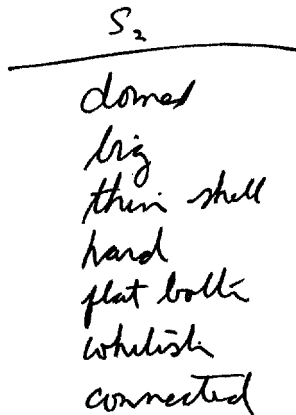 S₂
domed
big
thin shell
hard
flat
whitish
connected